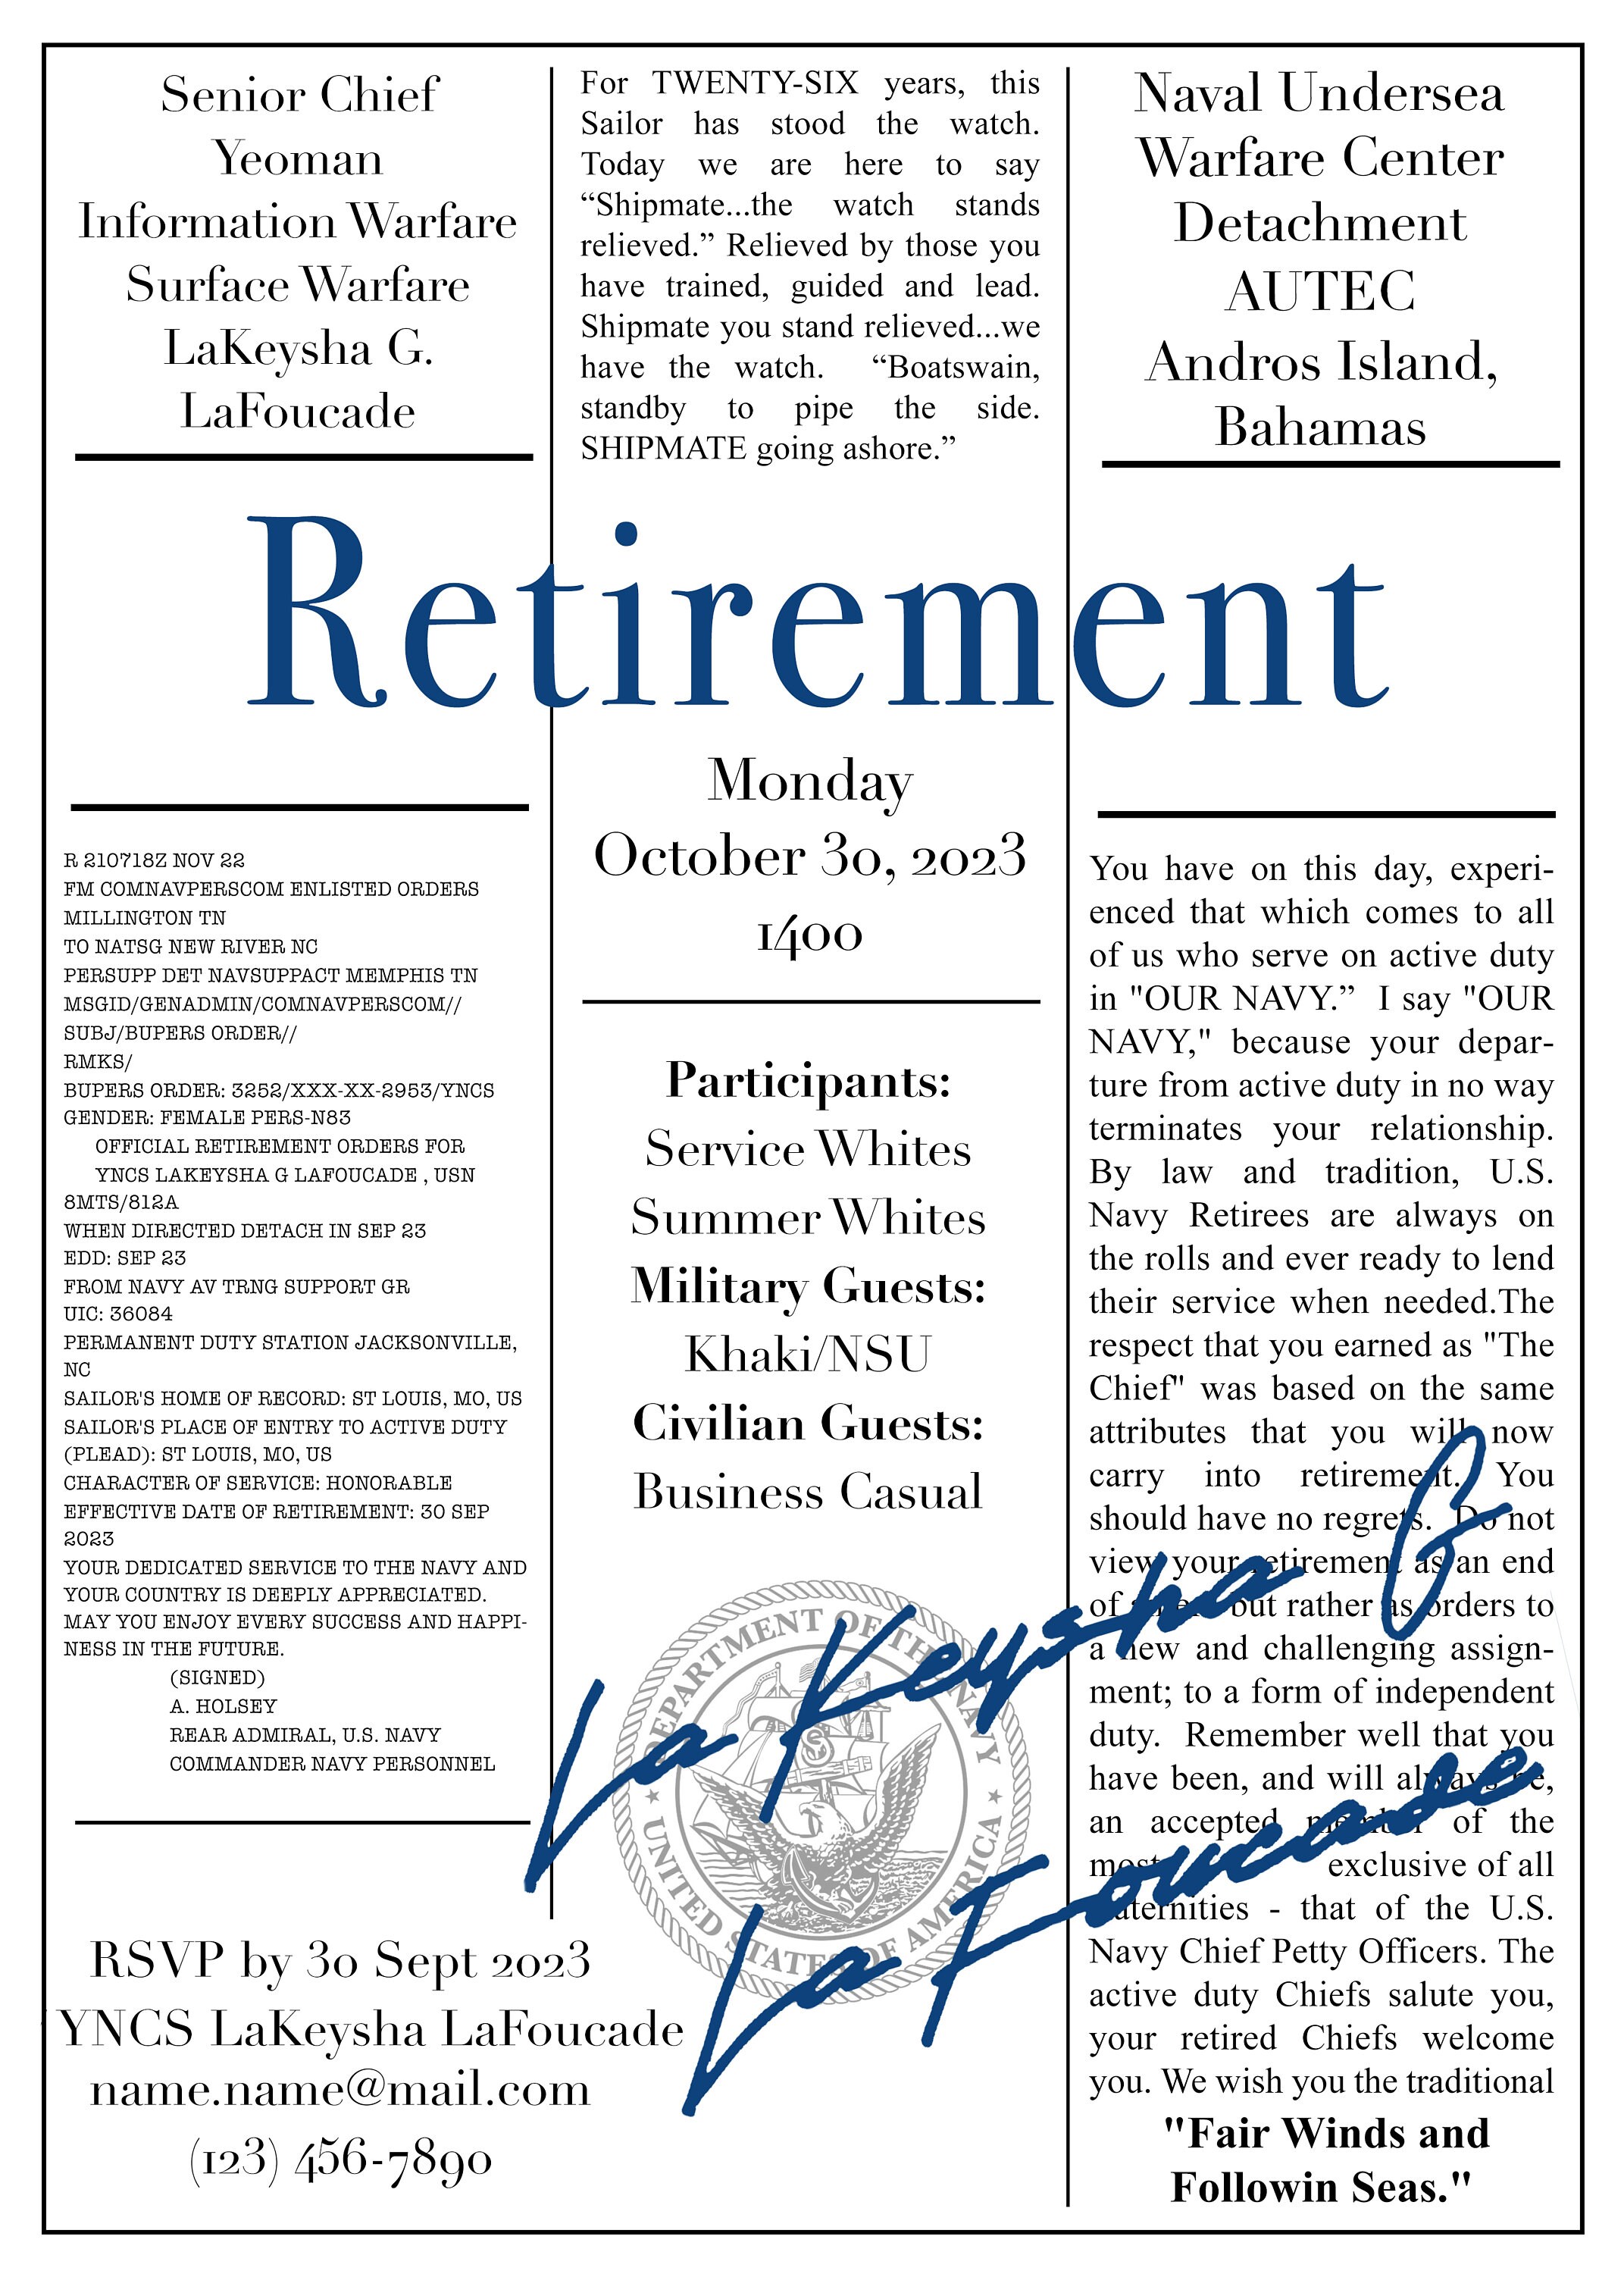 Senior Chief
Yeoman
Information Warfare
Surface Warfare
LaKeysha G.
LaFoucade
For TWENTY-SIX years, this
Sailor has stood the watch.
Today we are here to say
“Shipmate...the watch stands
relieved.” Relieved by those you
have trained, guided and lead.
Shipmate you stand relieved...we
have the watch. “Boatswain,
standby to pipe the side.
SHIPMATE going ashore.”
Naval Undersea
Warfare Center
Detachment
AUTEC
Andros Island,
Bahamas
Retirement
R 210718Z NOV 22
FM COMNAVPERSCOM ENLISTED ORDERS
MILLINGTON TN
TO NATSG NEW RIVER NC
PERSUPP DET NAVSUPPACT MEMPHIS TN
MSGID/GENADMIN/COMNAVPERSCOM//
SUBJ/BUPERS ORDER//
RMKS/
BUPERS ORDER: 3252/XXX-XX-2953/YNCS
GENDER: FEMALE PERS-N83
OFFICIAL RETIREMENT ORDERS FOR
YNCS LAKEYSHA G LAFOUCADE , USN
8MTS/812A
WHEN DIRECTED DETACH IN SEP 23
EDD: SEP 23
FROM NAVY AV TRNG SUPPORT GR
UIC: 36084
PERMANENT DUTY STATION JACKSONVILLE,
NC
SAILOR'S HOME OF RECORD: ST LOUIS, MO, US
SAILOR'S PLACE OF ENTRY TO ACTIVE DUTY
(PLEAD): ST LOUIS, MO, US
CHARACTER OF SERVICE: HONORABLE
EFFECTIVE DATE OF RETIREMENT: 30 SEP
2023
YOUR DEDICATED SERVICE TO THE NAVY AND
YOUR COUNTRY IS DEEPLY APPRECIATED.
MAY YOU ENJOY EVERY SUCCESS AND HAPPI-
NESS IN THE FUTURE.
(SIGNED)
A. HOLSEY
REAR ADMIRAL, U.S. NAVY
COMMANDER NAVY PERSONNEL
RSVP by 30 Sept 2023
YNCS LaKeysha LaFoucade
name.name@mail.com
(123) 456-7890
Monday
October 30, 2023
1400
Participants:
Service Whites
Summer Whites
Military Guests:
Khaki/NSU
Civilian Guests:
Business Casual
DEPARTMENT OF THE NAVY
UNITED STATES OF AMERICA
LaKeysha G
LaFoucade
You have on this day, experi-
enced that which comes to all
of us who serve on active duty
in "OUR NAVY.” I say "OUR
NAVY," because your depar-
ture from active duty in no way
terminates your relationship.
By law and tradition, U.S.
Navy Retirees are always on
the rolls and ever ready to lend
their service when needed.The
respect that you earned as "The
Chief" was based on the same
attributes that you will now
carry into retirement. You
should have no regrets. Do not
view your retirement as an end
of but rather as orders to
a new and challenging assign-
ment; to a form of independent
duty. Remember well that you
have been, and will always be,
an accepted member of the
most exclusive of all
fraternities - that of the U.S.
Navy Chief Petty Officers. The
active duty Chiefs salute you,
your retired Chiefs welcome
you. We wish you the traditional
"Fair Winds and
Followin Seas."